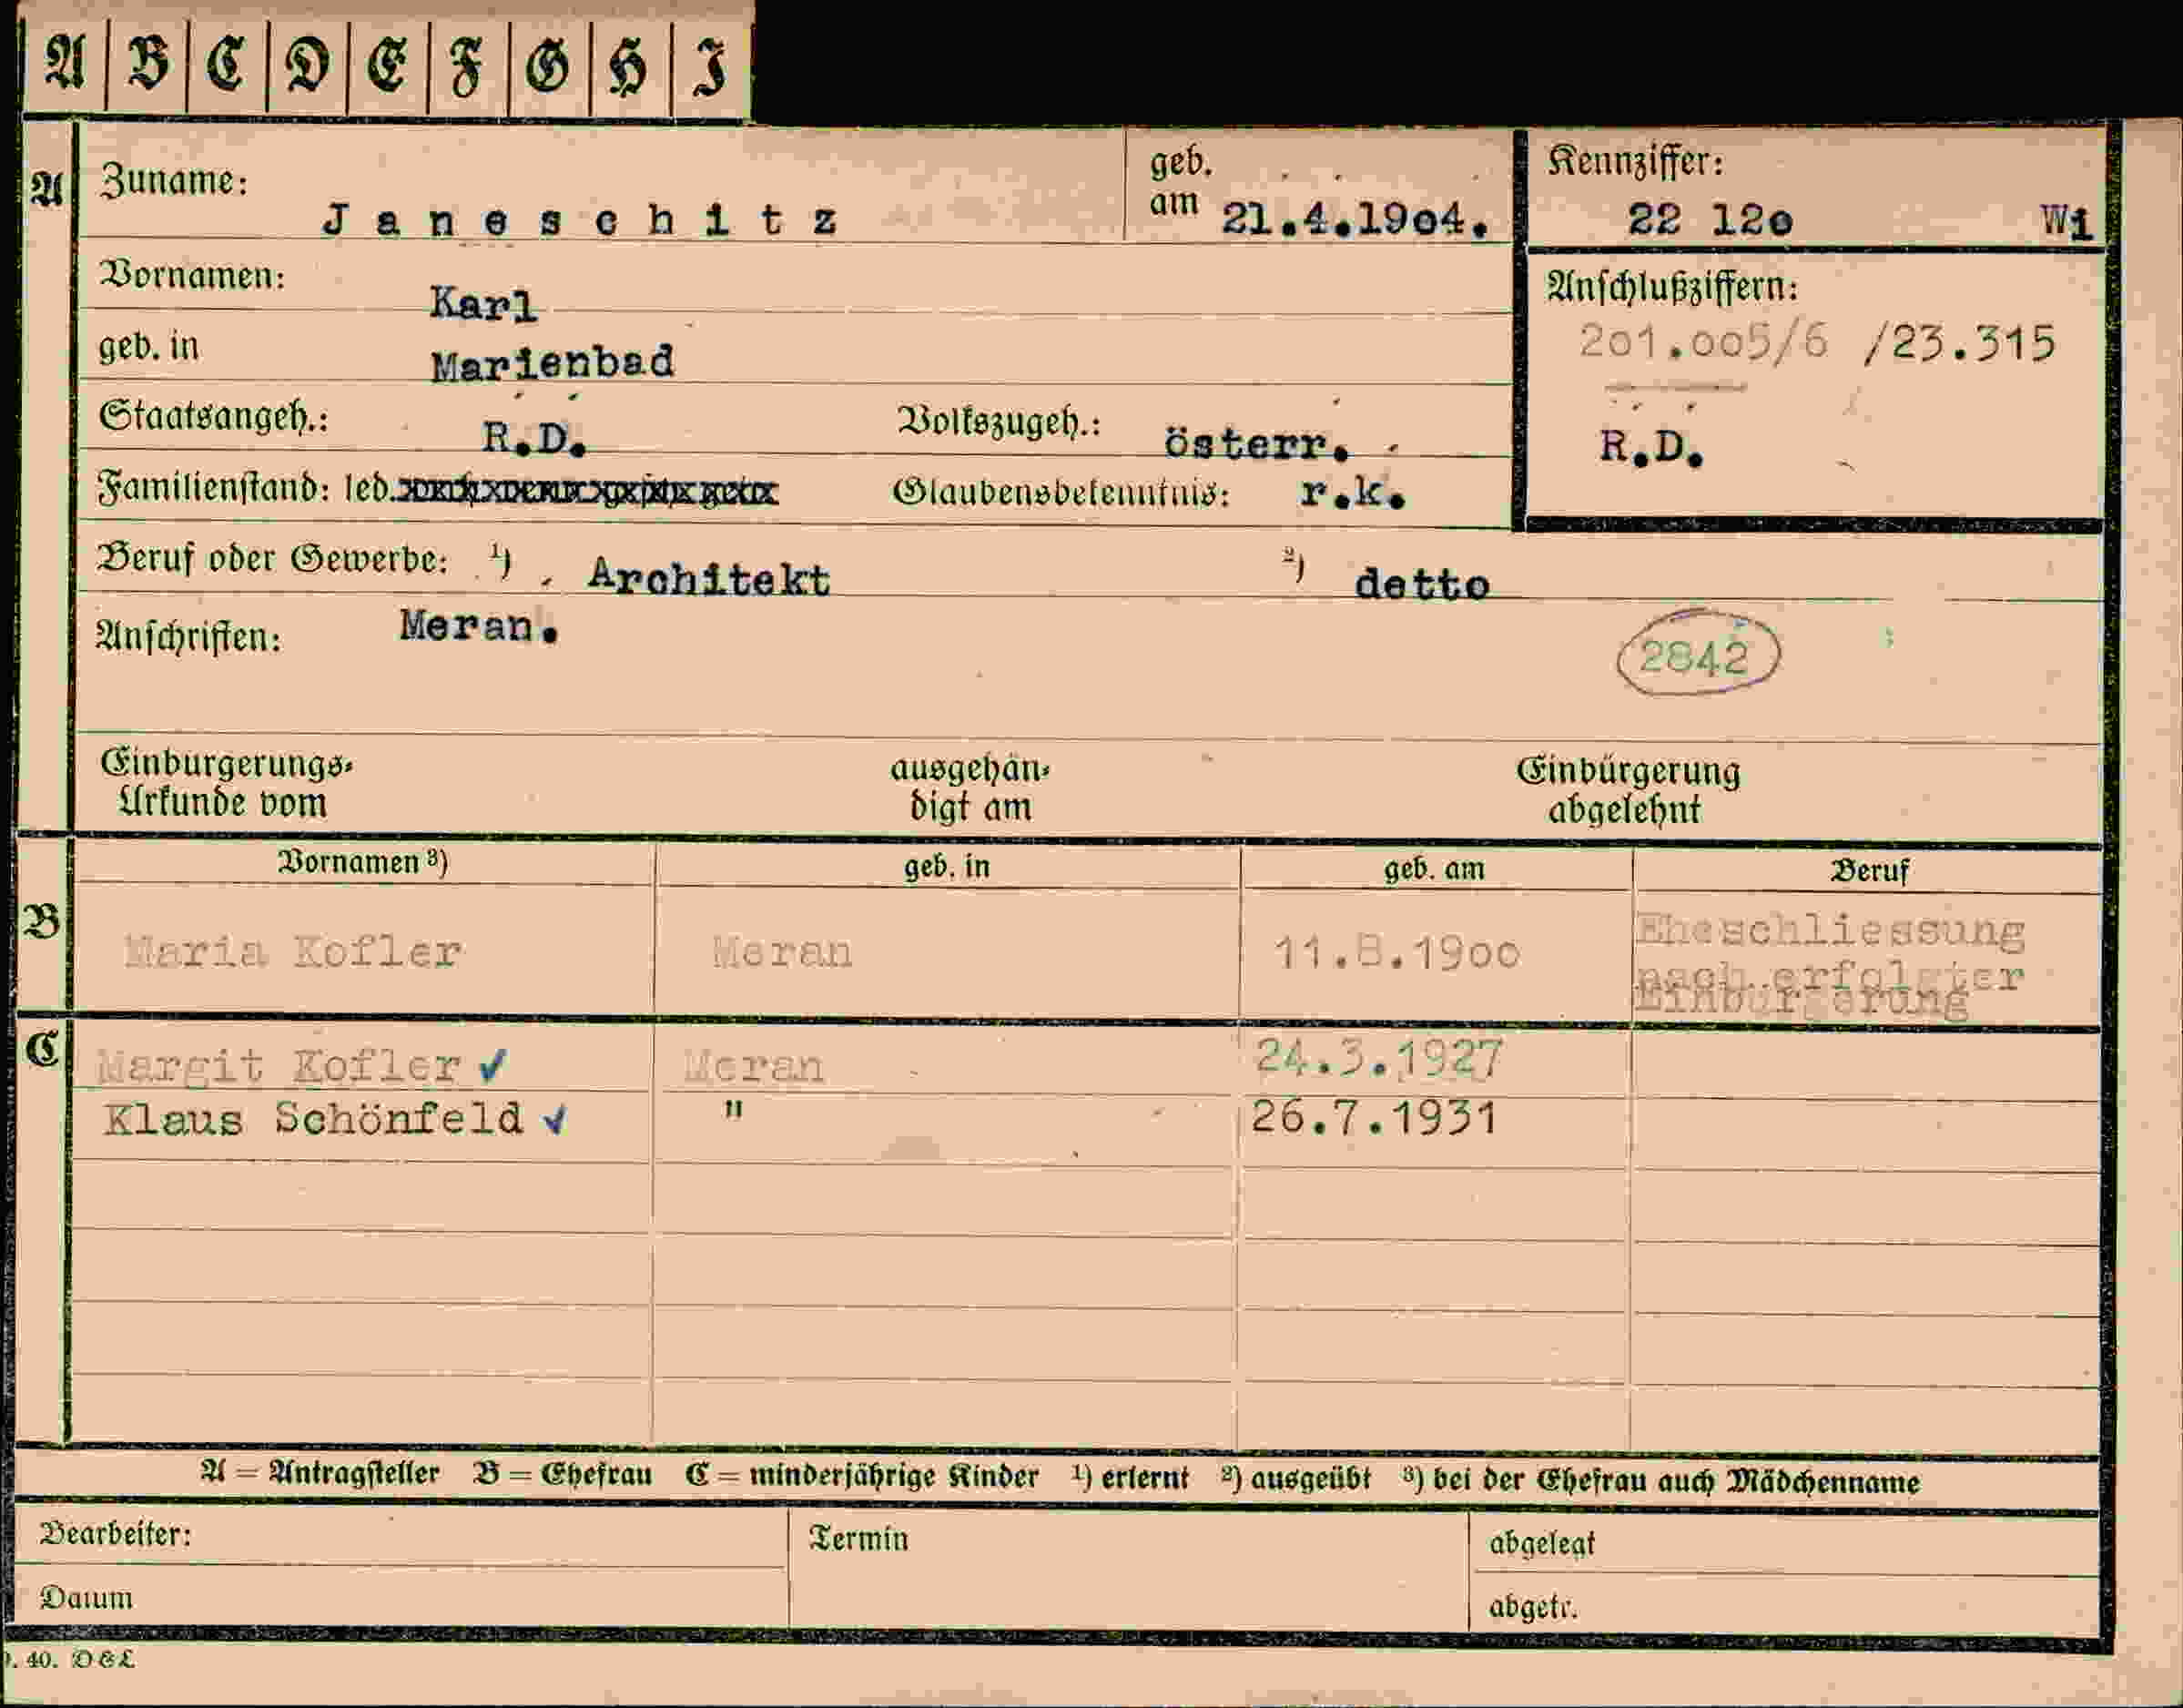 A B C D E F G H I
A Zuname: Janeschitz geb. am 21.4.19o4. Kennziffer: 22 12o Wi
Vornamen: Karl Anschlußziffern:
geb. in Marienbad 2o1.oo5/6 /23.315
Staatsangeh.: R.D. Volkszugeh.: österr. R.D.
Familienstand: led. Glaubensbekenntnis: r.k.
Beruf oder Gewerbe: 1) Architekt 2) detto
Anschriften: Meran.
2842
Einbürgerungs- ausgehän- Einbürgerung
Urkunde vom digt am abgelehnt
Vornamen 3) geb. in geb. am Beruf
B Maria Kofler Meran 11.8.19oo Eheschliessung
nach erfolgter
Einbürgerung
C Margit Kofler ✓ Meran 24.3.1927
Klaus Schönfeld ✓ " 26.7.1931
A = Antragsteller B = Ehefrau C = minderjährige Kinder 1) erlernt 2) ausgeübt 3) bei der Ehefrau auch Mädchenname
Bearbeiter: Termin abgelegt
Datum abgetr.
. 40. D&L